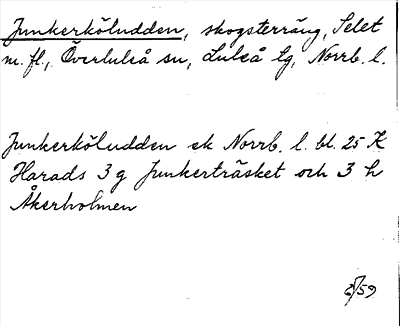 Junkerköludden, skogsterräng, Selet
m. fl., Överluleå sn, Luleå tg, Norrb. l.
Junkerköludden ek Norrb. l. bl. 25 K
Harads 3 g Junkerträsket och 3 h
Åkerholmen
/59